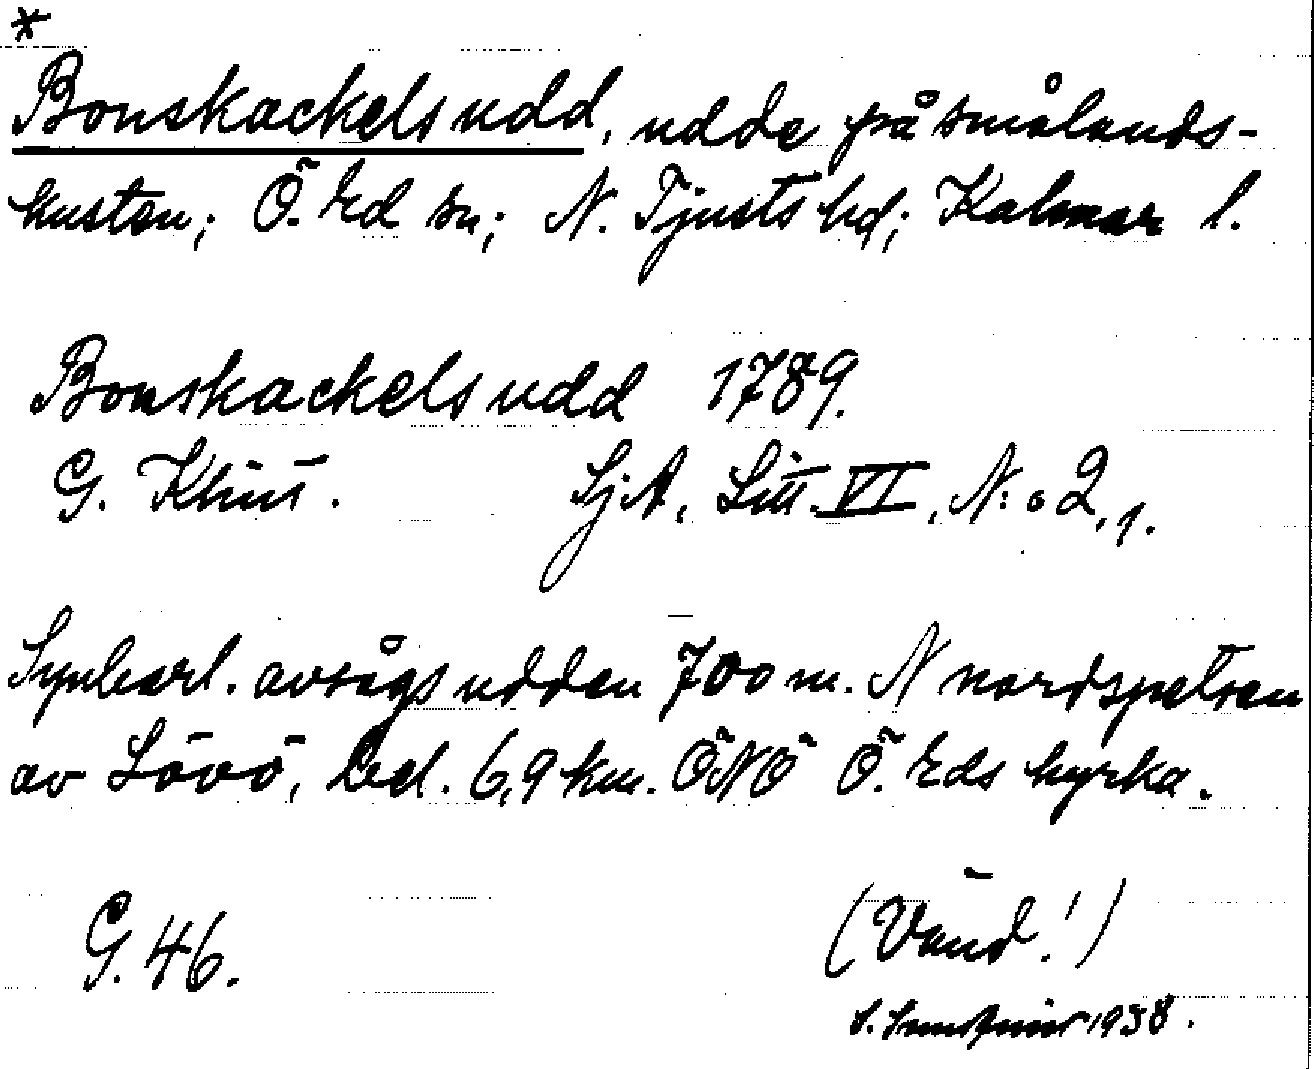 *
Bonskackels udd, udde på smålands-
kusten; Ö. Ed sn; N. Tjusts hd; Kalmar l.
Bonskackels udd 1789.
G. Klint. SjA, Litt. VI, N:o 2,1.
Synbarl. avsågs udden 700 m. N nordspetsen
av Lövö, bel. 6,9 km. ÖNÖ Ö. Eds kyrka.
G. 46. (Vänd!)
1938.